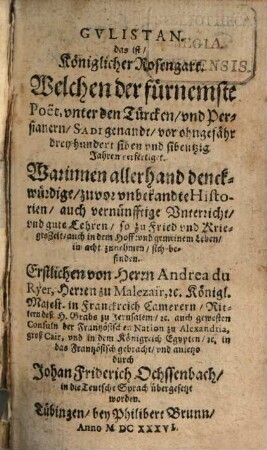 GVLISTAN.
das ist/
Königlicher Rosengart.
Welchen der fürnemste
Poët, vnter den Türcken/vnd Per-
sianern/ SADI genandt/ vor ohngefähr
dreyhundert siben vnd sibentzig
Jahren verfertiget.
Warinnen allerhand denck-
würdige/zuvor vnbekandte Histo-
rien/ auch vernünfftige Vnterricht/
vnd gute Lehren/ so zu Fried vnd Krie-
gsZeit/auch in dem Hoff vnd gemeinem Leben/
in acht zunehmen/ sich be-
finden.
Erstlichen von Herrn Andrea du
Ryer, Herren zu Malezair, ꝛc. Königl.
Majest. in Franckreich Camerern/ Rit-
tern deß H. Grabs zu Jerusalem/ ꝛc. auch gewesten
Consuln der Frantzösischen Nation zu Alexandria,
groß Cair, vnd in dem Königreich Egypten/ ꝛc. in
das Frantzösisch gebracht/ vnd anjetzo
durch
Johan Friderich Ochssenbach/
in die Teutsche Sprach übergesetzt
worden.
Tübingen/ bey Philibert Brunn/
Anno M DC XXXVI.